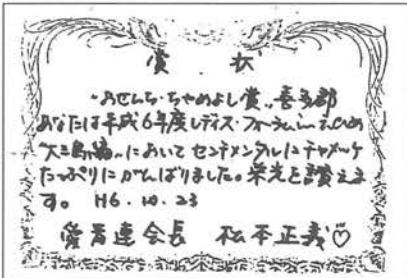 賞 状
"おせんち・ちゃめよし賞" 喜多郡
あなたは平成6年度レディス・フォーラムinえひめ
"大三島編"においてセンチメンタルにチャメッケ
たっぷりにがんばりました。栄光を讃えま
す。 H6.10.23
愛青連会長 松本正義♡